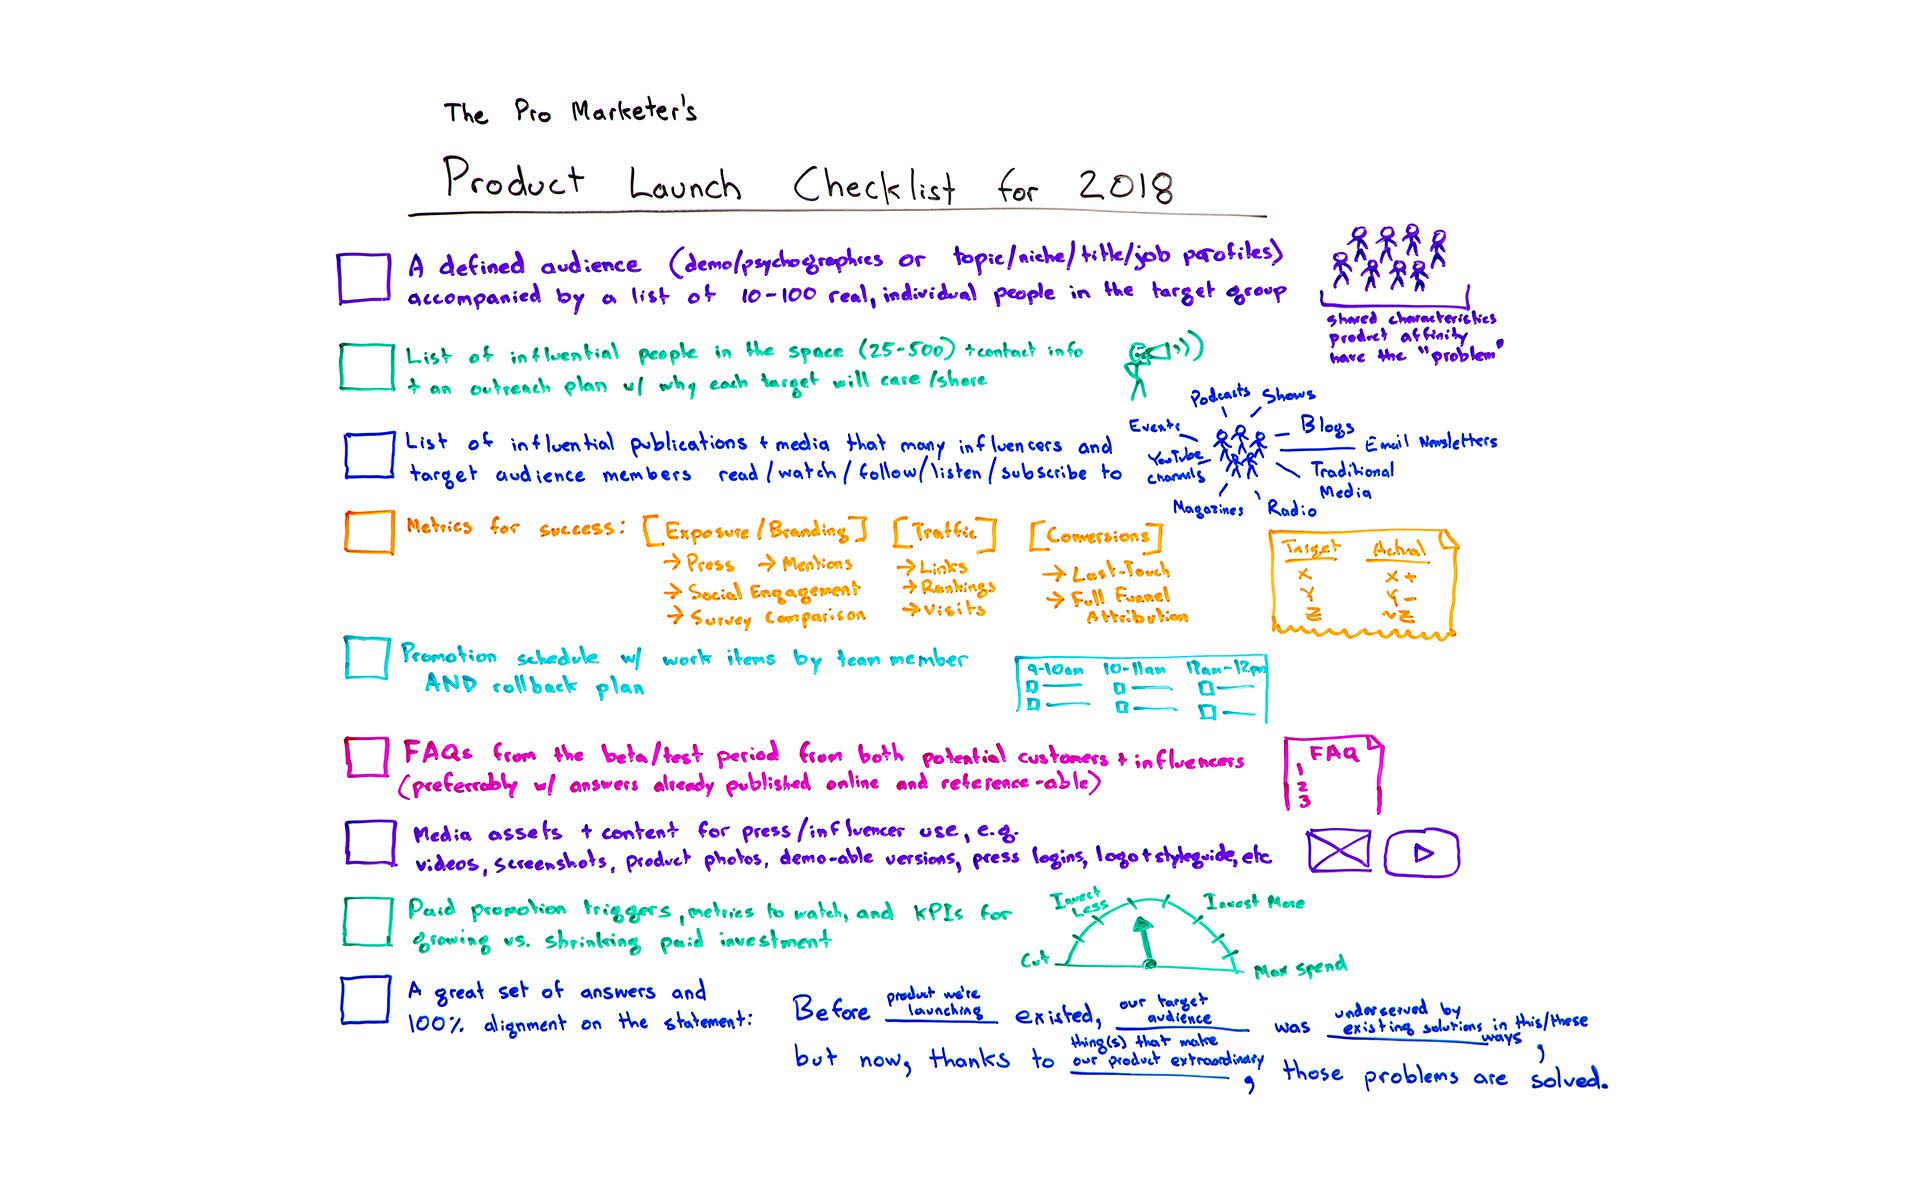 The Pro Marketer's
Product Launch Checklist for 2018
A defined audience (demo/psychographics or topic/niche/title/job parofiles)
accompanied by a list of 10-100 real, individual people in the target group
shared characteristics
product affinity
have the "problem"
List of influential people in the space (25-500) + contact info
+ an outreach plan w/ why each target will care/share
List of influential publications + media that many influencers and
target audience members read/watch/follow/listen/subscribe to
Podcasts
Shows
Events
Blogs
Email Newsletters
YouTube
channels
Traditional
Media
Magazines
Radio
Metrics for success:
[Exposure/Branding]
→ Press → Mentions
→ Social Engagement
→ Survey Comparison
[Traffic]
→ Links
→ Rankings
→ Visits
[Conversions]
→ Last-Touch
→ Full Funnel
Attribution
Target Actual
X X+
Y Y-
Z ~Z
Promotion schedule w/ work items by team member
AND rollback plan
9-10am 10-11am 12am-12pm
FAQs from the beta/test period from both potential customers + influencers
(preferrably w/ answers already published online and reference-able)
FAQ
1
2
3
Media assets + content for press/influencer use, e.g.
videos, screenshots, product photos, demo-able versions, press logins, logo + styleguide, etc
Paid promotion triggers, metrics to watch, and KPIs for
growing vs. shrinking paid investment
Cut
Invest
Less
Invest More
Max Spend
A great set of answers and
100% alignment on the statement:
Before product we're launching existed, our target audience was underserved by existing solutions in this/these ways,
but now, thanks to thing(s) that make our product extraordinary, those problems are solved.